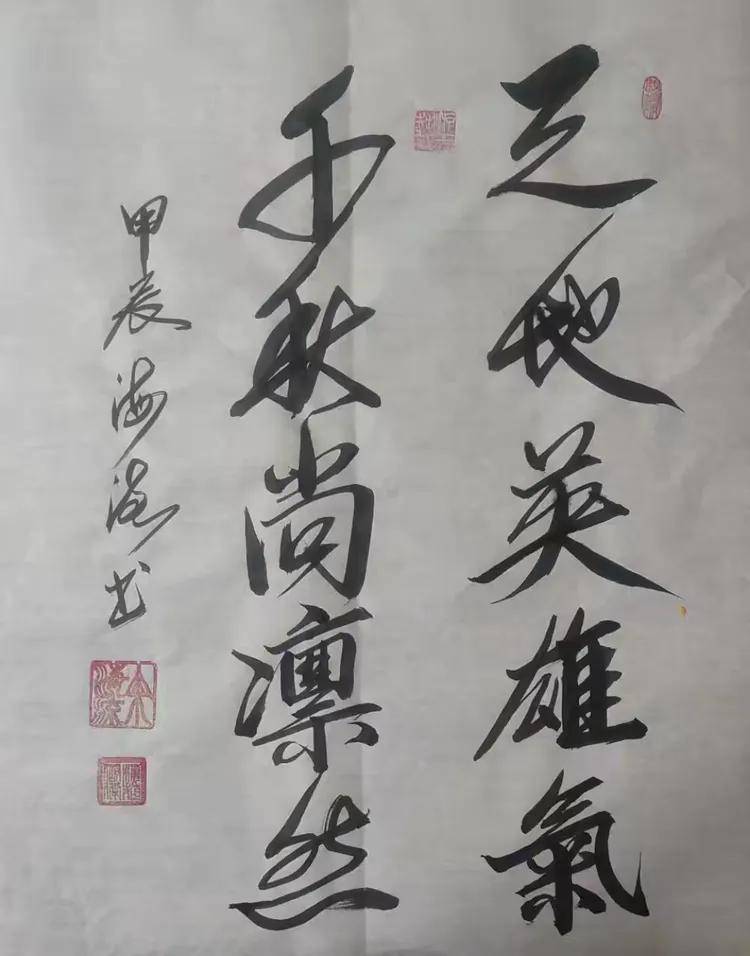 天地英雄氣
千秋尚凛然
甲辰海书